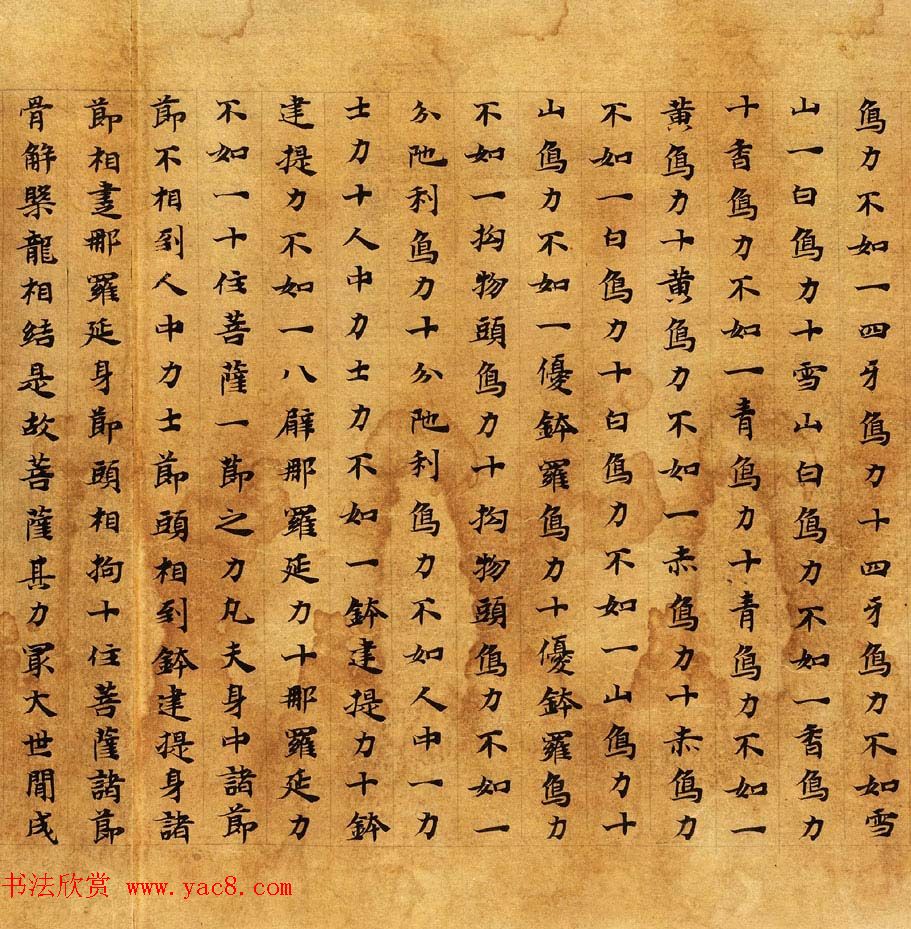 象力不如一四牙象力十四牙象力不如雪
山一白象力十雪山白象力不如一香象力
十香象力不如一青象力十青象力不如一
黄象力十黄象力不如一赤象力十赤象力
不如一白象力十白象力不如一山象力十
山象力不如一優鉢羅象力十優鉢羅象力
不如一拘物頭象力十拘物頭象力不如一
分陁利象力十分陁利象力不如人中一力
士力十人中力士力不如一鉢建提力十鉢
建提力不如一八臂那羅延力十那羅延力
不如一十住菩薩一節之力凡夫身中諸節
節不相到人中力士節頭相到鉢建提身諸
節相那羅延身節頭相拘十住菩薩諸節
骨解槃龍相結是故菩薩其力冣大世間成
书法欣赏 www.yac8.com